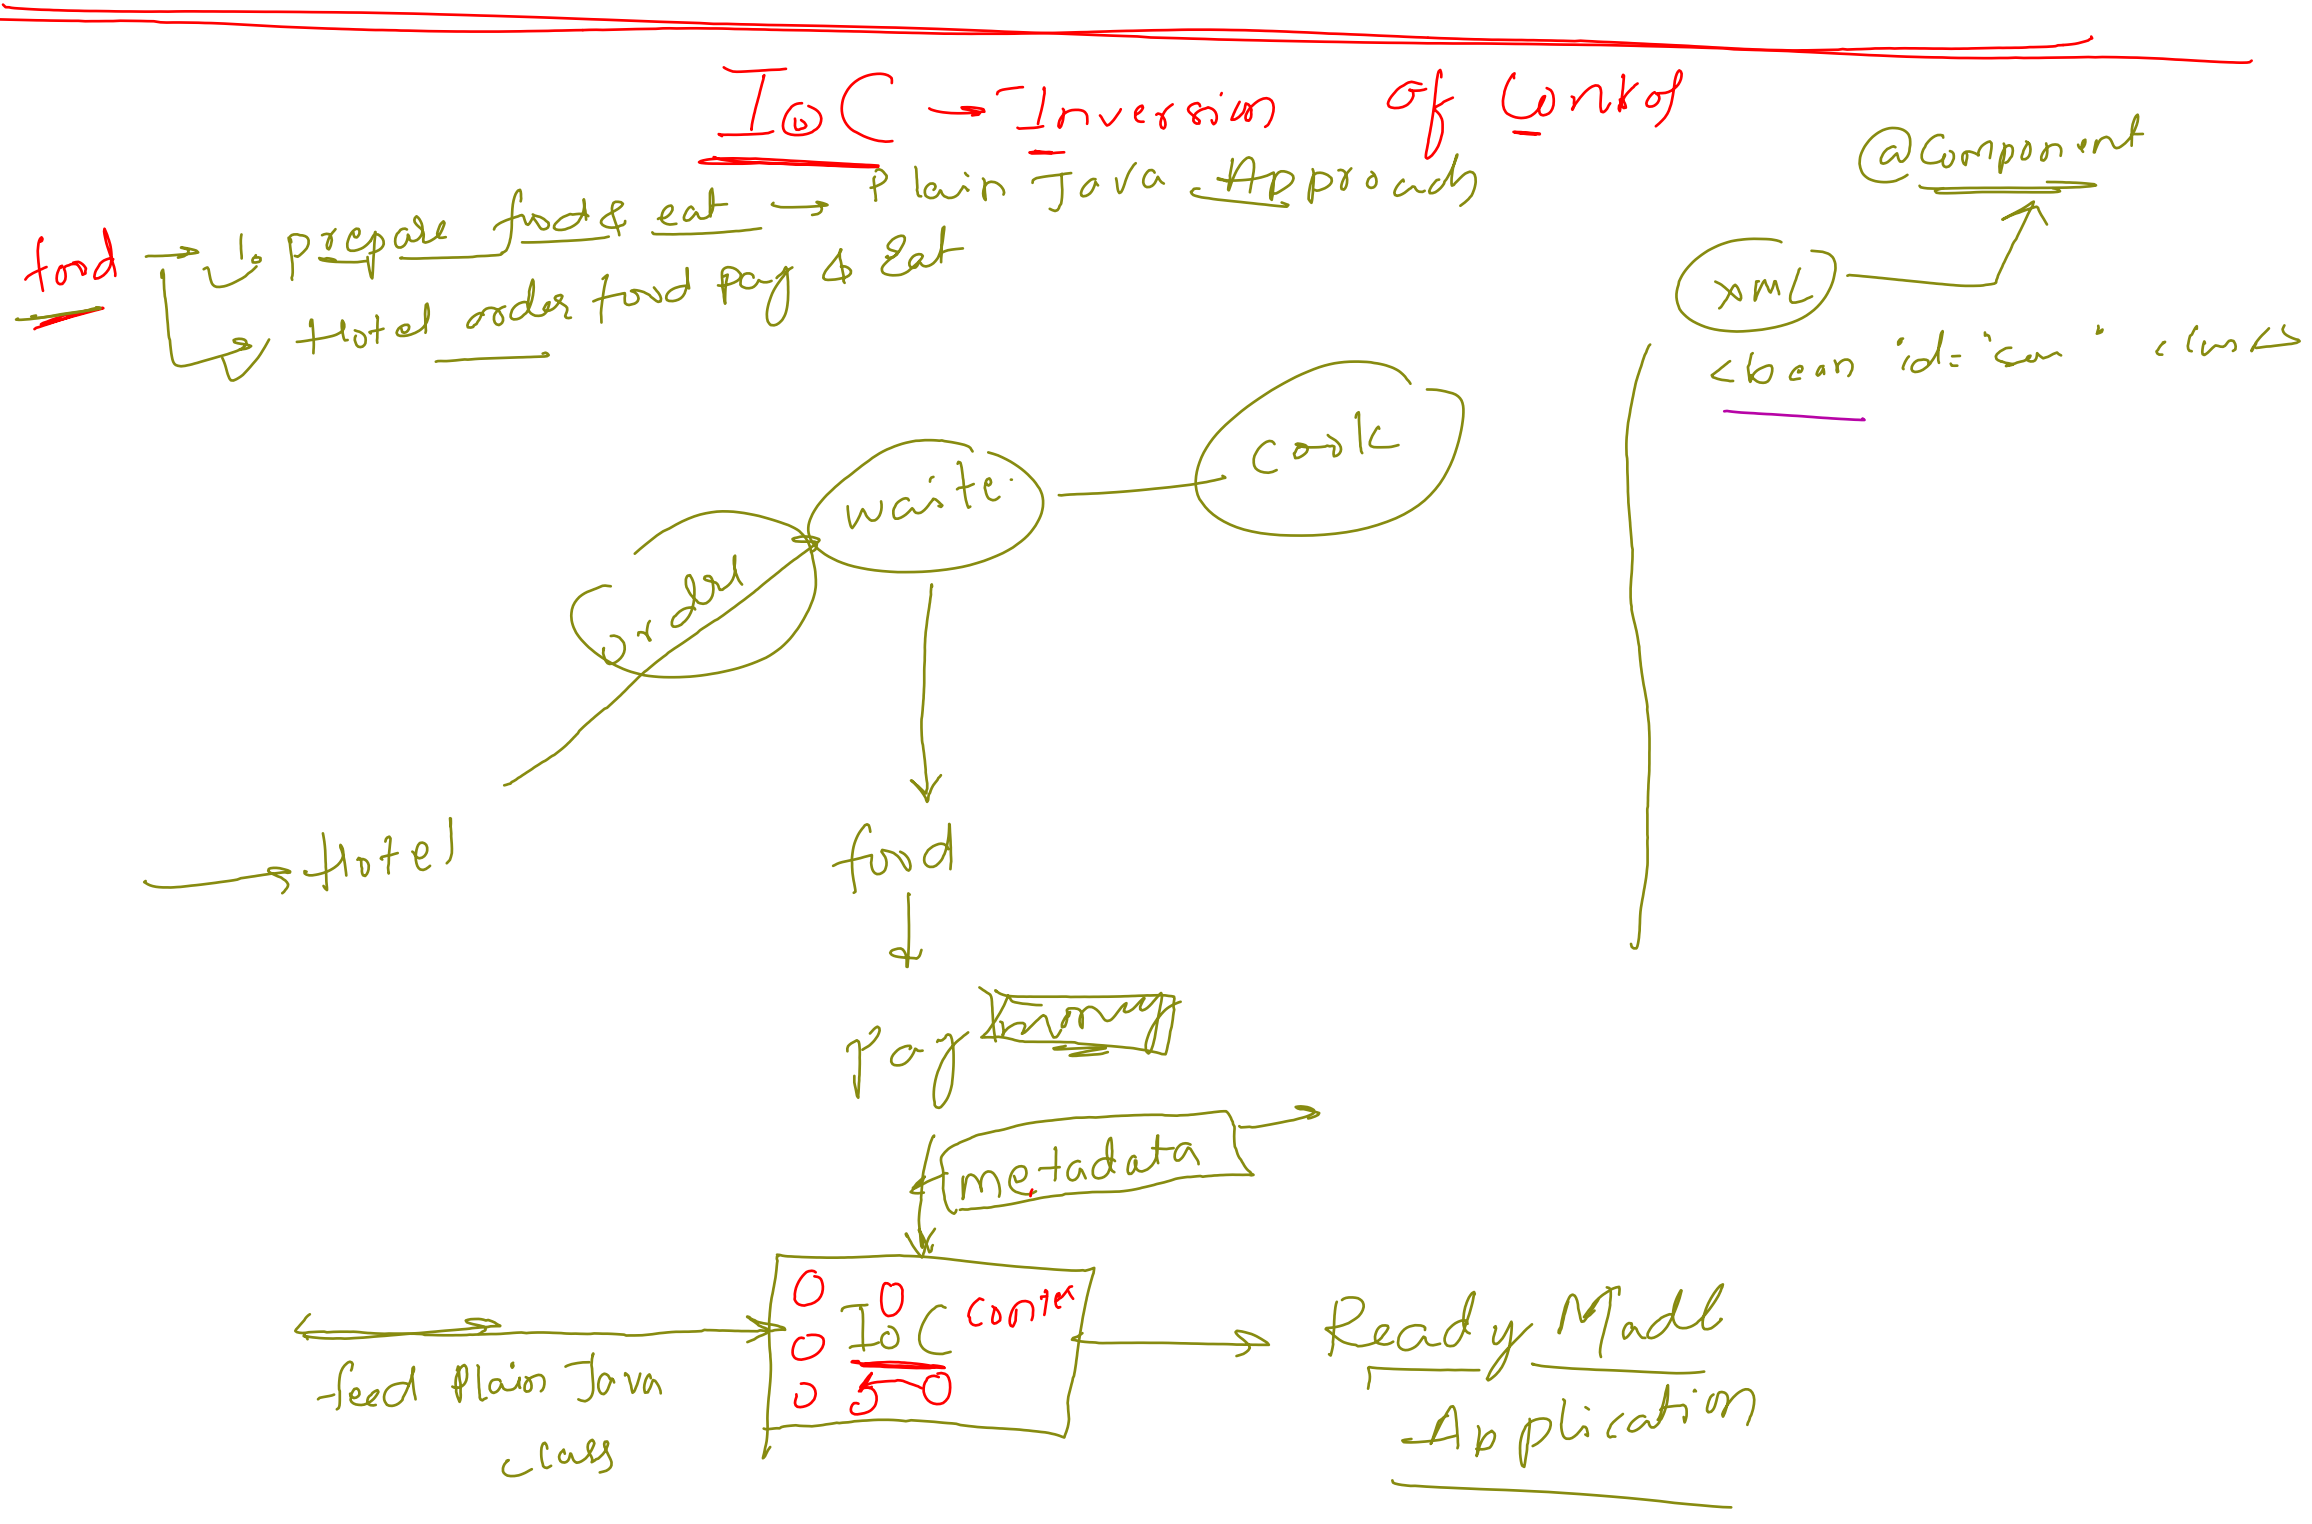 IoC → Inversion of Control
@Component
food → 1. Prepare food & eat → Plain Java Approach
Hotel order food pay & Eat
XML
<bean id="car" class
Cook
waiter
order
Hotel
food
pay
metadata
IOC cont
feed Plain Java
class
Ready Made
Application